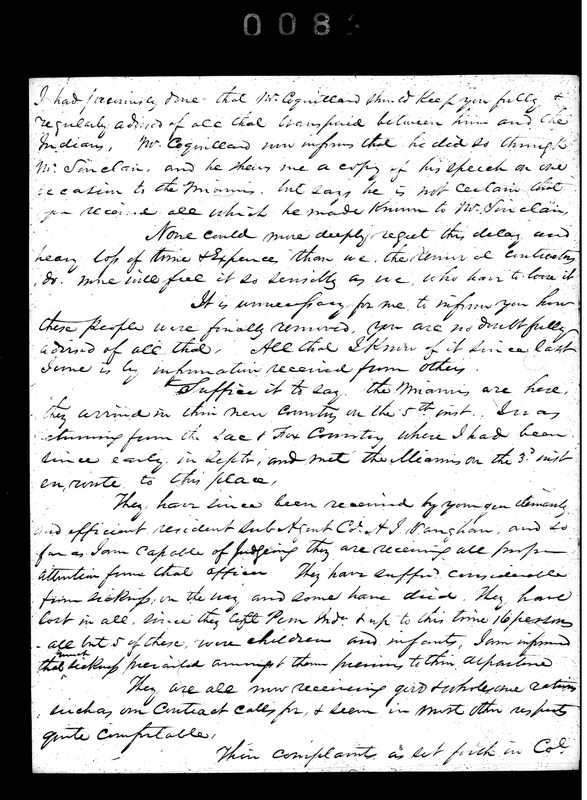 008
I had previously done that Mr. Coquillard should keep you fully &
regularly advised of all that transpired between him and the
Indians, Mr. Coquillard now informs that he did so through
Mr. Sinclair, and he shews me a copy of his speech on one
occasion to the Miamis. but says he is not certain that
you received all which he made known to Mr. Sinclair,
None could more deeply regret this delay and
heavy loss of time & Expence than we. the removal Contractors
do. none will feel it so sensibly as we, who have to lose it
It is unnecessary for me to inform you how
these people were finally removed, you are no doubt fully
advised of all that, All that I Know of it since last
June is by information received from others.
Suffice it to say. the Miamis are here,
they arrived in their new Country on the 5th inst. I was
returning from the Sac & Fox Country where I had been
since early in Septr, and met the Miamis on the 3d inst
en, route to this place,
They have since been received by your gentlemanly
and efficient resident sub Agent Col. A. J. Vaughan, and so
far as I am capable of Judging they are receiving all proper
attention from that officer They have suffered considerable
from sickness, on the way and some have died. They have
lost in all, since they left Peru Inda. & up to this time 16 persons
all but 5 of these, were children and infants, I am informed
that much sickness prevailed amongst them previous to their departure
They are all now receiving good & wholesome rations
such as our Contract calls for, & seem in most other respects
quite comfortable,
Their complaints as set forth in Col.